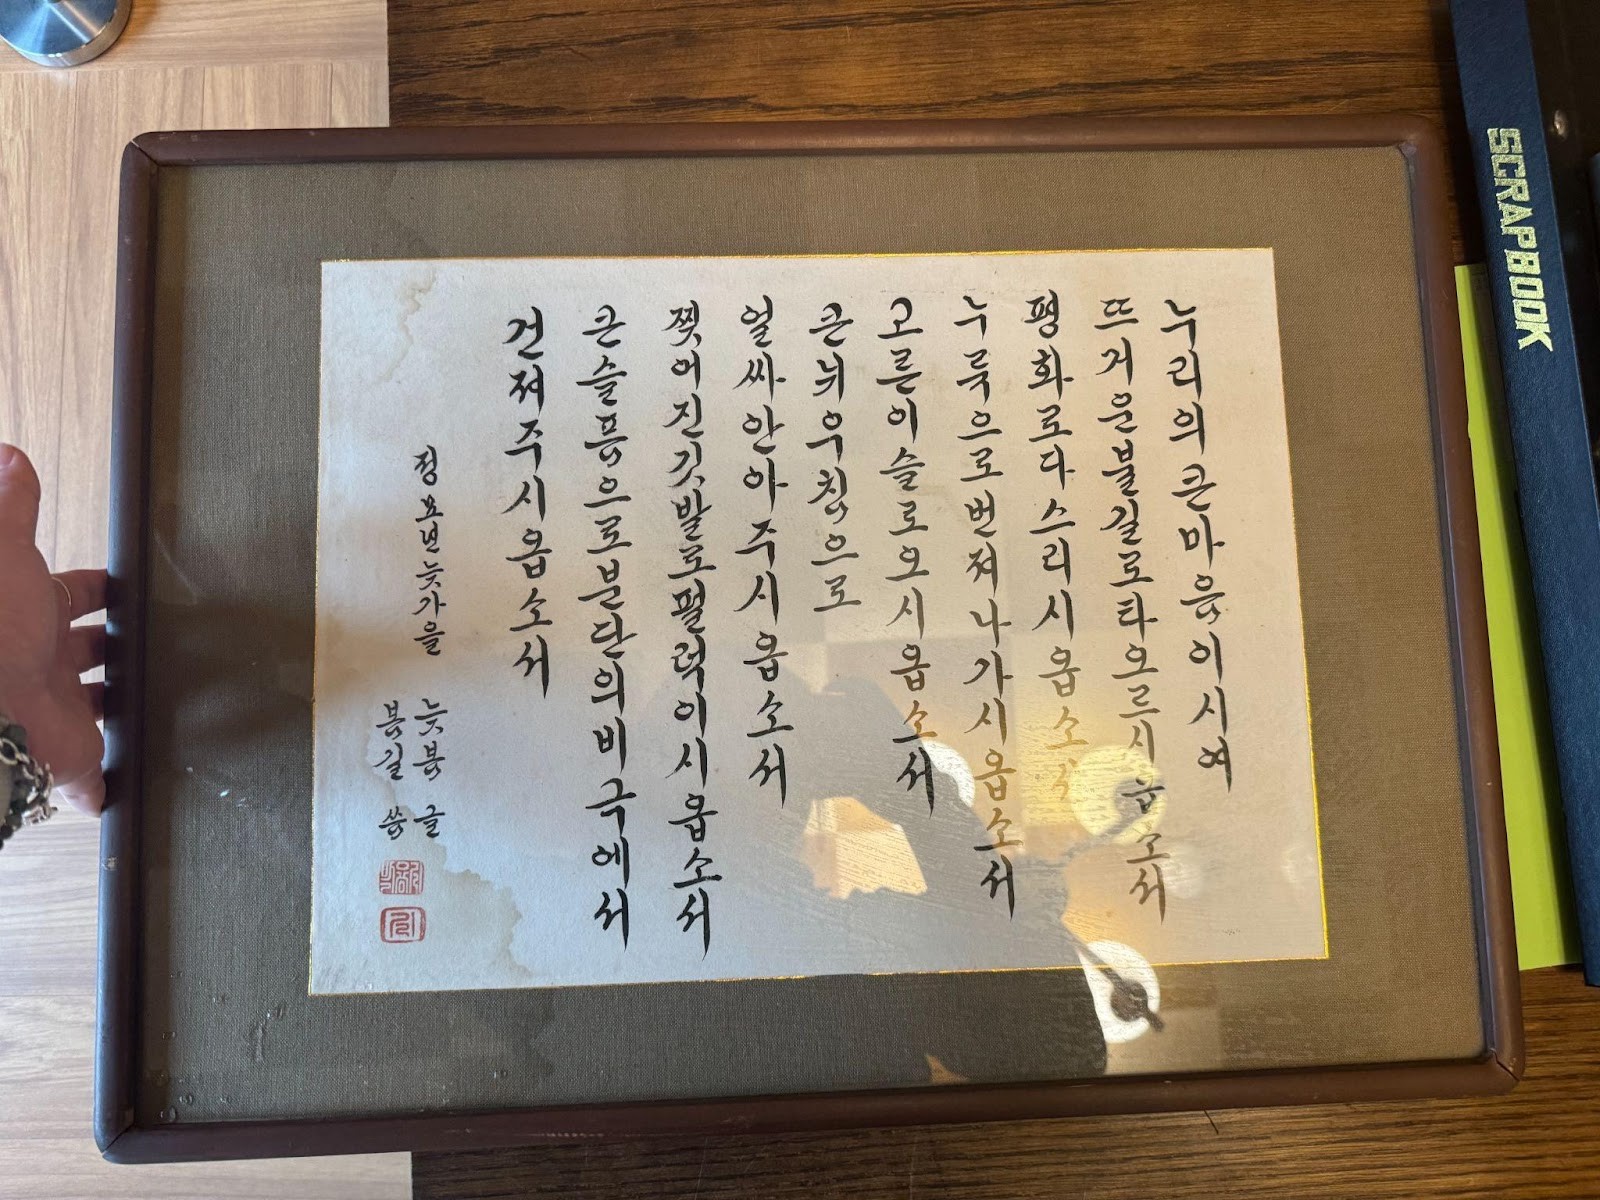 누리의큰마음이시여
뜨거운불길로타오르시옵소서
평화로다스리시옵소서
누룩으로번져나가시옵소서
고른이슬로오시옵소서
큰뉘우침으로
얼싸안아주시옵소서
찢어진깃발로펄럭이시옵소서
큰슬픔으로분단의비극에서
건져주시옵소서
정묘년늦가을 늦봄 글
봄길 씀
SCRAPBOOK